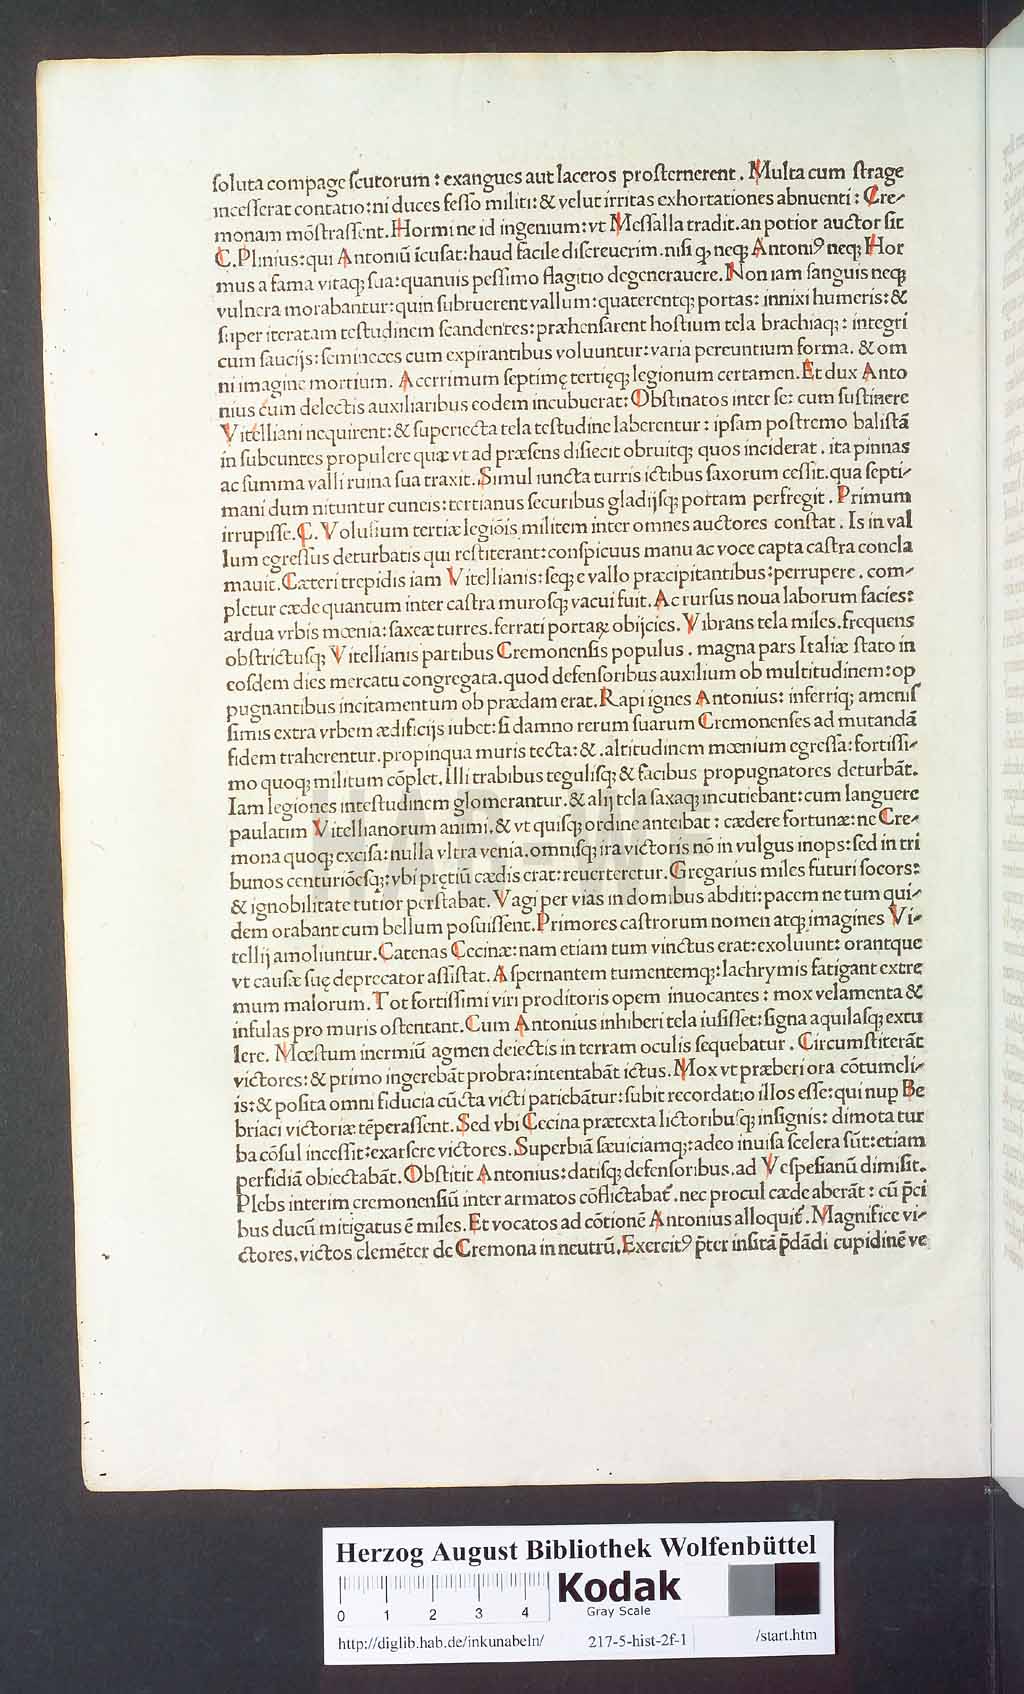 soluta compage scutorum : exangues aut laceros prosternerent . Multa cum strage
incesserat contatio : ni duces fesso militi : & velut irritas exhortationes abnuenti : Cre-
monam mōstrassent . Hormi ne id ingenium : vt Messalla tradit . an potior auctor sit
C . Plinius : qui Antoniū īcusat : haud facile discreuerim . nisi ꝙ neqꝫ Antoniꝰ neqꝫ Hor
mus a fama vitaqꝫ sua : quanuis pessimo flagitio degenerauere . Non iam sanguis neqꝫ
vulnera morabantur : quin subruerent vallum : quaterentqꝫ portas : innixi humeris : &
super iteratam testudinem scandentes : præhensarent hostium tela brachiaqꝫ : integri
cum saucijs : semineces cum expirantibus voluuntur : varia pereuntium forma . & om
ni imagine mortium . Acerrimum septimę tertięqꝫ legionum certamen . Et dux Anto
nius cum delectis auxiliaribus eodem incubuerat : Obstinatos inter se : cum sustinere
Vitelliani nequirent : & superiecta tela testudine laberentur : ipsam postremo balistā
in subeuntes propulere quæ vt ad præsens disiecit obruitqꝫ quos inciderat . ita pinnas
ac summa valli ruina sua traxit . Simul iuncta turris ictibus saxorum cessit . qua septi-
mani dum nituntur cuneis : tertianus securibus gladijsqꝫ portam perfregit . Primum
irrupisse . C . Volusium tertiæ legiōis militem inter omnes auctores constat . Is in val
lum egressus deturbatis qui restiterant : conspicuus manu ac voce capta castra concla
mauit . Cæteri trepidis iam Vitellianis : seqꝫ e vallo præcipitantibus : perrupere . com-
pletur cæde quantum inter castra murosqꝫ vacui fuit . Ac rursus noua laborum facies :
ardua vrbis mœnia : saxeæ turres . ferrati portaꝝ obijcies . Vibrans tela miles . frequens
obstrictusqꝫ Vitellianis partibus Cremonensis populus . magna pars Italiæ stato in
eosdem dies mercatu congregata . quod defensoribus auxilium ob multitudinem : op
pugnantibus incitamentum ob prædam erat . Rapi ignes Antonius : inferriqꝫ amenis
simis extra vrbem ædificijs iubet : si damno rerum suarum Cremonenses ad mutandā
fidem traherentur . propinqua muris tecta : & . altitudinem mœnium egressa : fortissi-
mo quoqꝫ militum cōplet . Illi trabibus tegulisqꝫ & facibus propugnatores deturbāt .
Iam legiones intestudinem glomerantur . & alij tela saxaqꝫ incutiebant : cum languere
paulatim Vitellianorum animi . & vt quisqꝫ ordine anteibat : cædere fortunæ : ne Cre-
mona quoqꝫ excisa : nulla vltra venia . omnisqꝫ ira victoris nō in vulgus inops : sed in tri
bunos centuriōesqꝫ : vbi prętiū cædis erat : reuerteretur . Gregarius miles futuri socors :
& ignobilitate tutior perstabat . Vagi per vias in domibus abditi : pacem ne tum qui-
dem orabant cum bellum posuissent . Primores castrorum nomen atqꝫ imagines Vi-
tellij amoliuntur . Catenas Cecinæ : nam etiam tum vinctus erat : exoluunt : orantque
vt causæ suę deprecator assistat . Aspernantem tumentemqꝫ : lachrymis fatigant extre
mum malorum . Tot fortissimi viri proditoris opem inuocantes : mox velamenta &
infulas pro muris ostentant . Cum Antonius inhiberi tela iusisset : signa aquilasqꝫ extu
lere . Mœstum inermiū agmen deiectis in terram oculis sequebatur . Circumstiterāt
victores : & primo ingerebāt probra : intentabāt ictus . Mox vt præberi ora cōtumeli-
is : & posita omni fiducia cūcta victi patiebātur : subit recordatio illos esse : qui nup Be
briaci victoriæ tēperassent . Sed vbi Cecina prætexta lictoribusqꝫ insignis : dimota tur
ba cōsul incessit : exarsere victores . Superbiā sæuiciamqꝫ : adeo inuisa scelera sūt : etiam
perfidiā obiectabāt . Obstitit Antonius : datisqꝫ defensoribus . ad Vespesianū dimisit .
Plebs interim cremonensiū inter armatos cōflictabat̄ . nec procul cæde aberāt : cū p̄ci
bus ducū mitigatus ē miles . Et vocatos ad cōtionē Antonius alloquit̄ . Magnifice vi-
ctores . victos clemēter de Cremona in neutrū . Exercitꝰ p̄ter insitā p̄dādi cupidinē ve
Herzog August Bibliothek Wolfenbüttel
0 1 2 3 4
Kodak
Gray Scale
http://diglib.hab.de/inkunabeln/ 217-5-hist-2f-1 /start.htm
HAB-WF